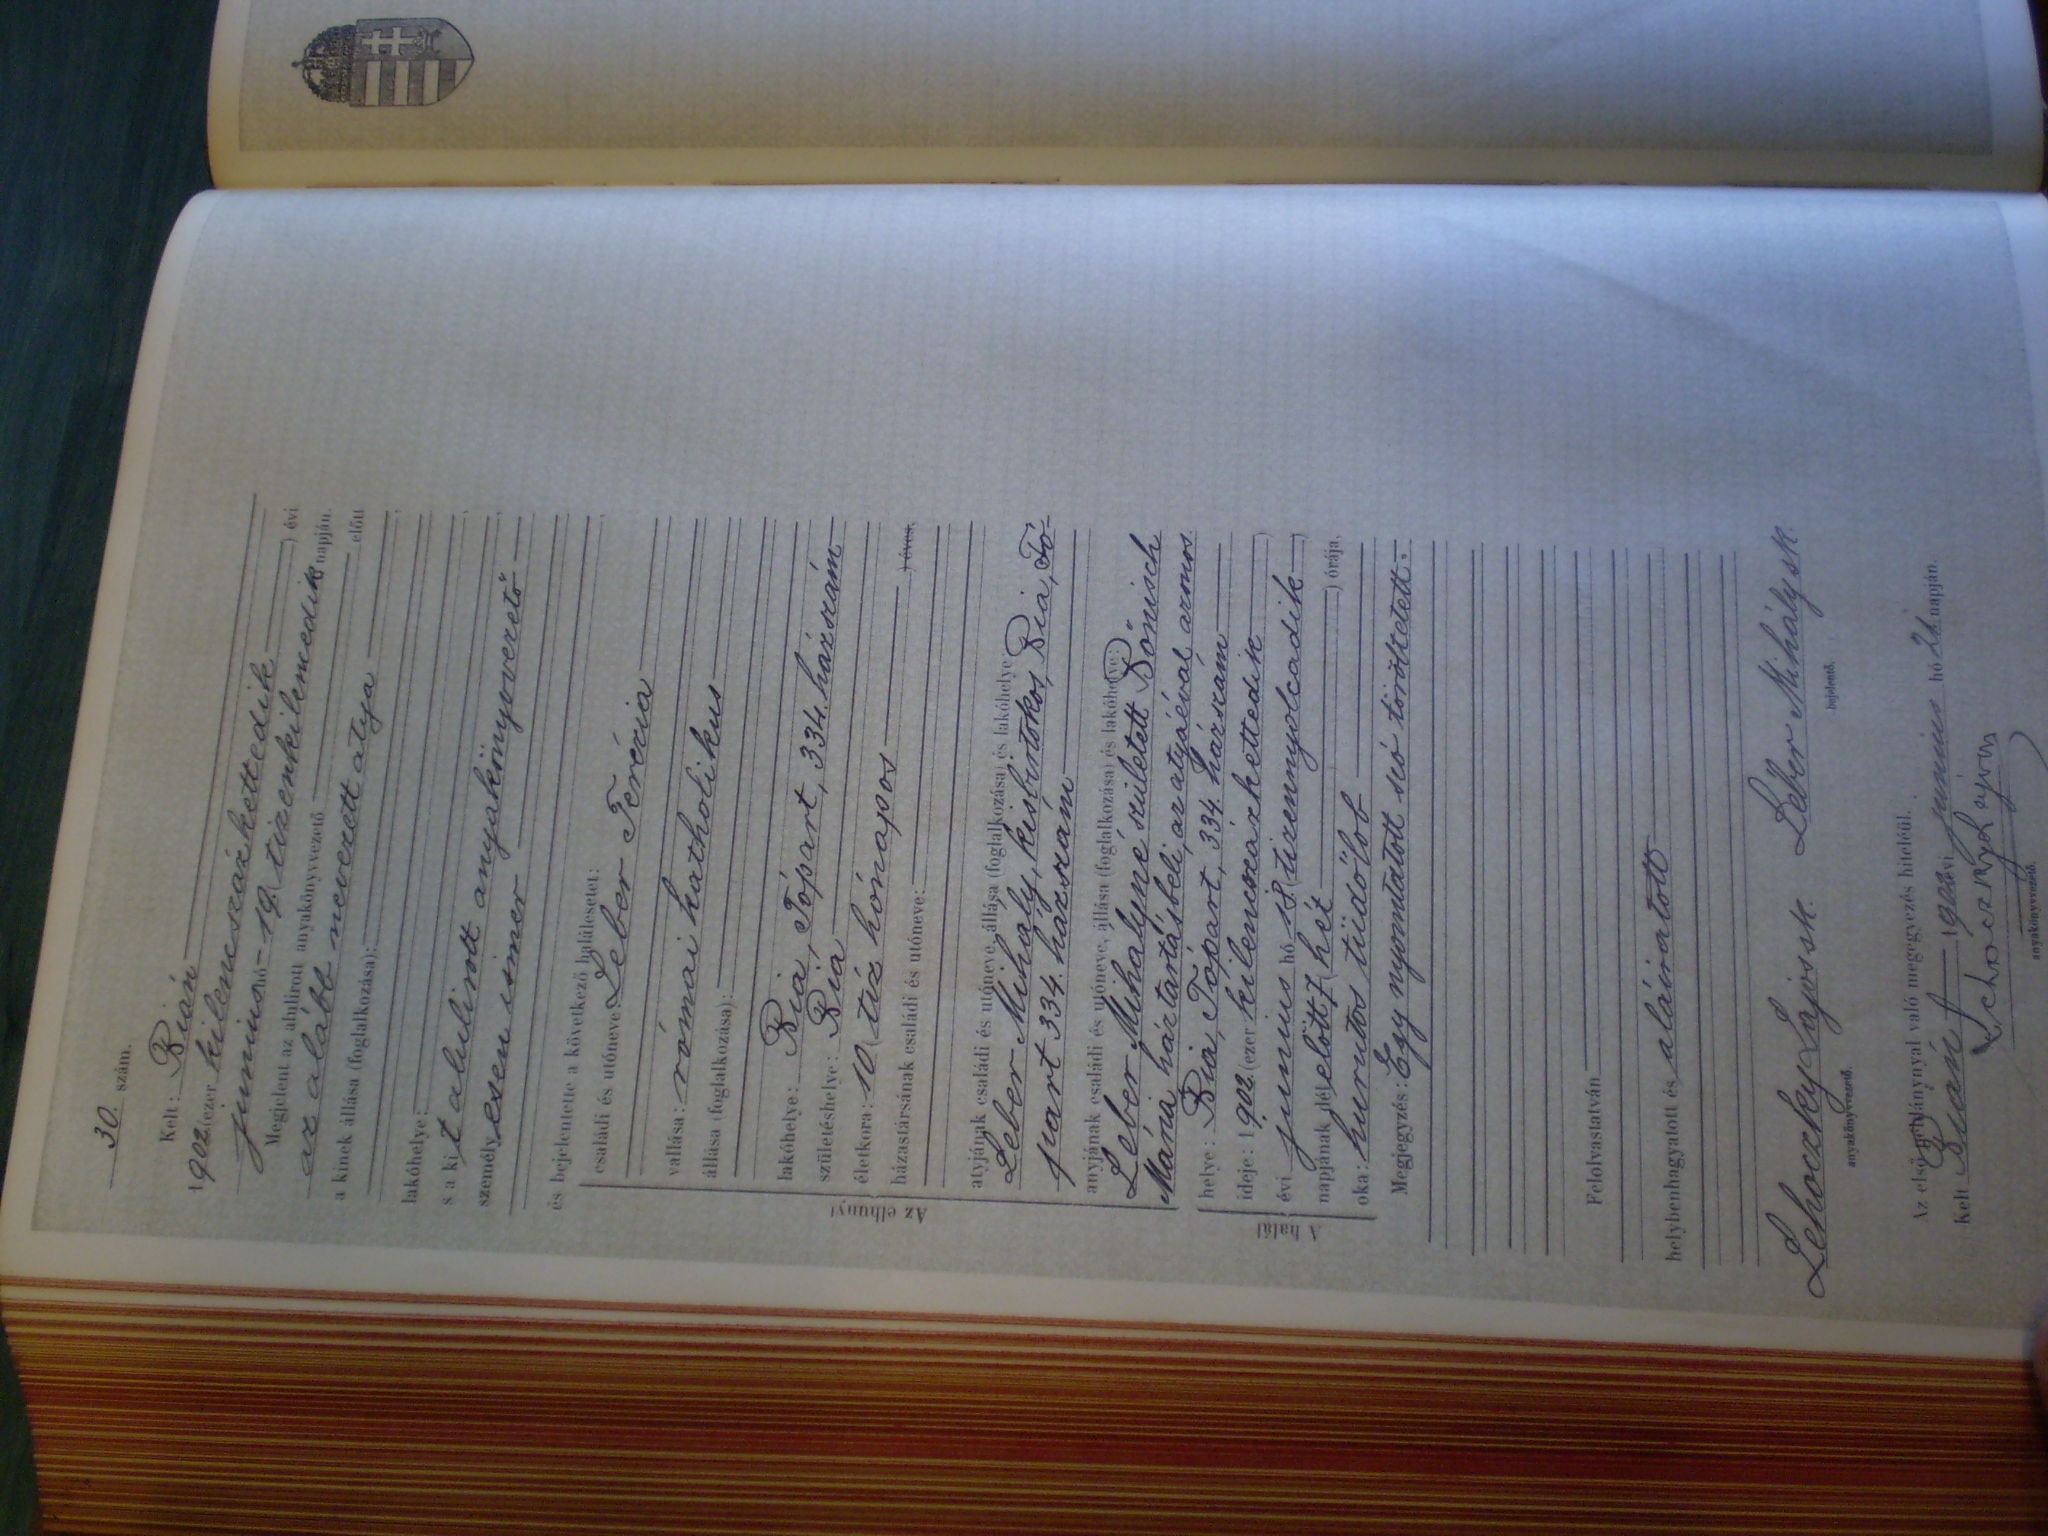 30. szám.
Kelt: Bián
1902 (ezer kilencszázkettedik ) évi
junius hó 19 (tizenkilencedik napján.
Megjelent az alulirott anyakönyvvezető előtt
az alább nevezett atya
a kinek állása (foglalkozása):
lakóhelye:
s a kit alulirott anyakönyvvezető
személyesen ismer
és bejelentette a következő halálesetet:
Az elhunyt
családi és utóneve: Leber Terézia
vallása: római katholikus
állása (foglalkozása):
lakóhelye: Bia, Tópart, 334. házszám
születéshelye: Bia
életkora: 10 (tíz hónapos ) éves,
házastársának családi és utóneve:
atyjának családi és utóneve, állása (foglalkozása) és lakóhelye:
Leber Mihály, kisbirtokos, Bia, Tó-
part 334. házszám
anyjának családi és utóneve, állása (foglalkozása) és lakóhelye:
Leber Mihályné született Bőnisch
Mária háztartásbeli, az atyáéval azonos
A halál
helye: Bia, Tópart, 334. házszám
ideje: 1902 (ezer kilencszázkettedik )
évi junius hó 18 (tizennyolcadik )
napjának délelőtt 7 (hét ) órája,
oka: hurutos tüdőlob
Megjegyzés: Egy nyomtatott szó töröltetett.
Felolvastatván
helybenhagyatott és aláiratott
Lehoczky Lajos sk. Léber Mihály sk.
anyakönyvvezető. bejelentő.
Az első példánynyal való megegyezés hiteléül.
Kelt Bián 1902 évi junius hó 21 napján.
Lehoczky Lajos
anyakönyvvezető.